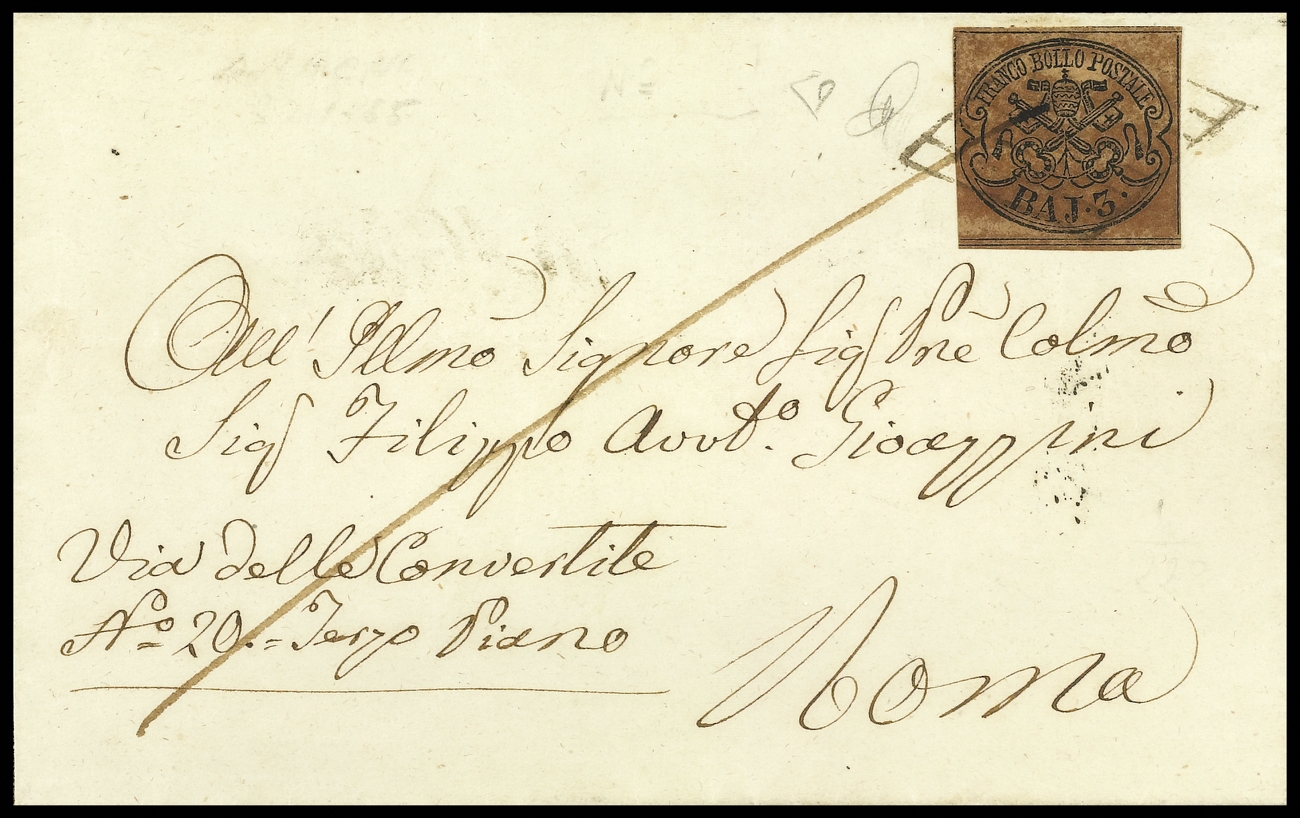 FRANCO BOLLO POSTALE
BAJ. 3.
All' Illmo Signore Sig Prē Colmō
Sig Filippo Avvto. Gioazzini
Via delle Convertite
No 20.= Terzo Piano
Roma